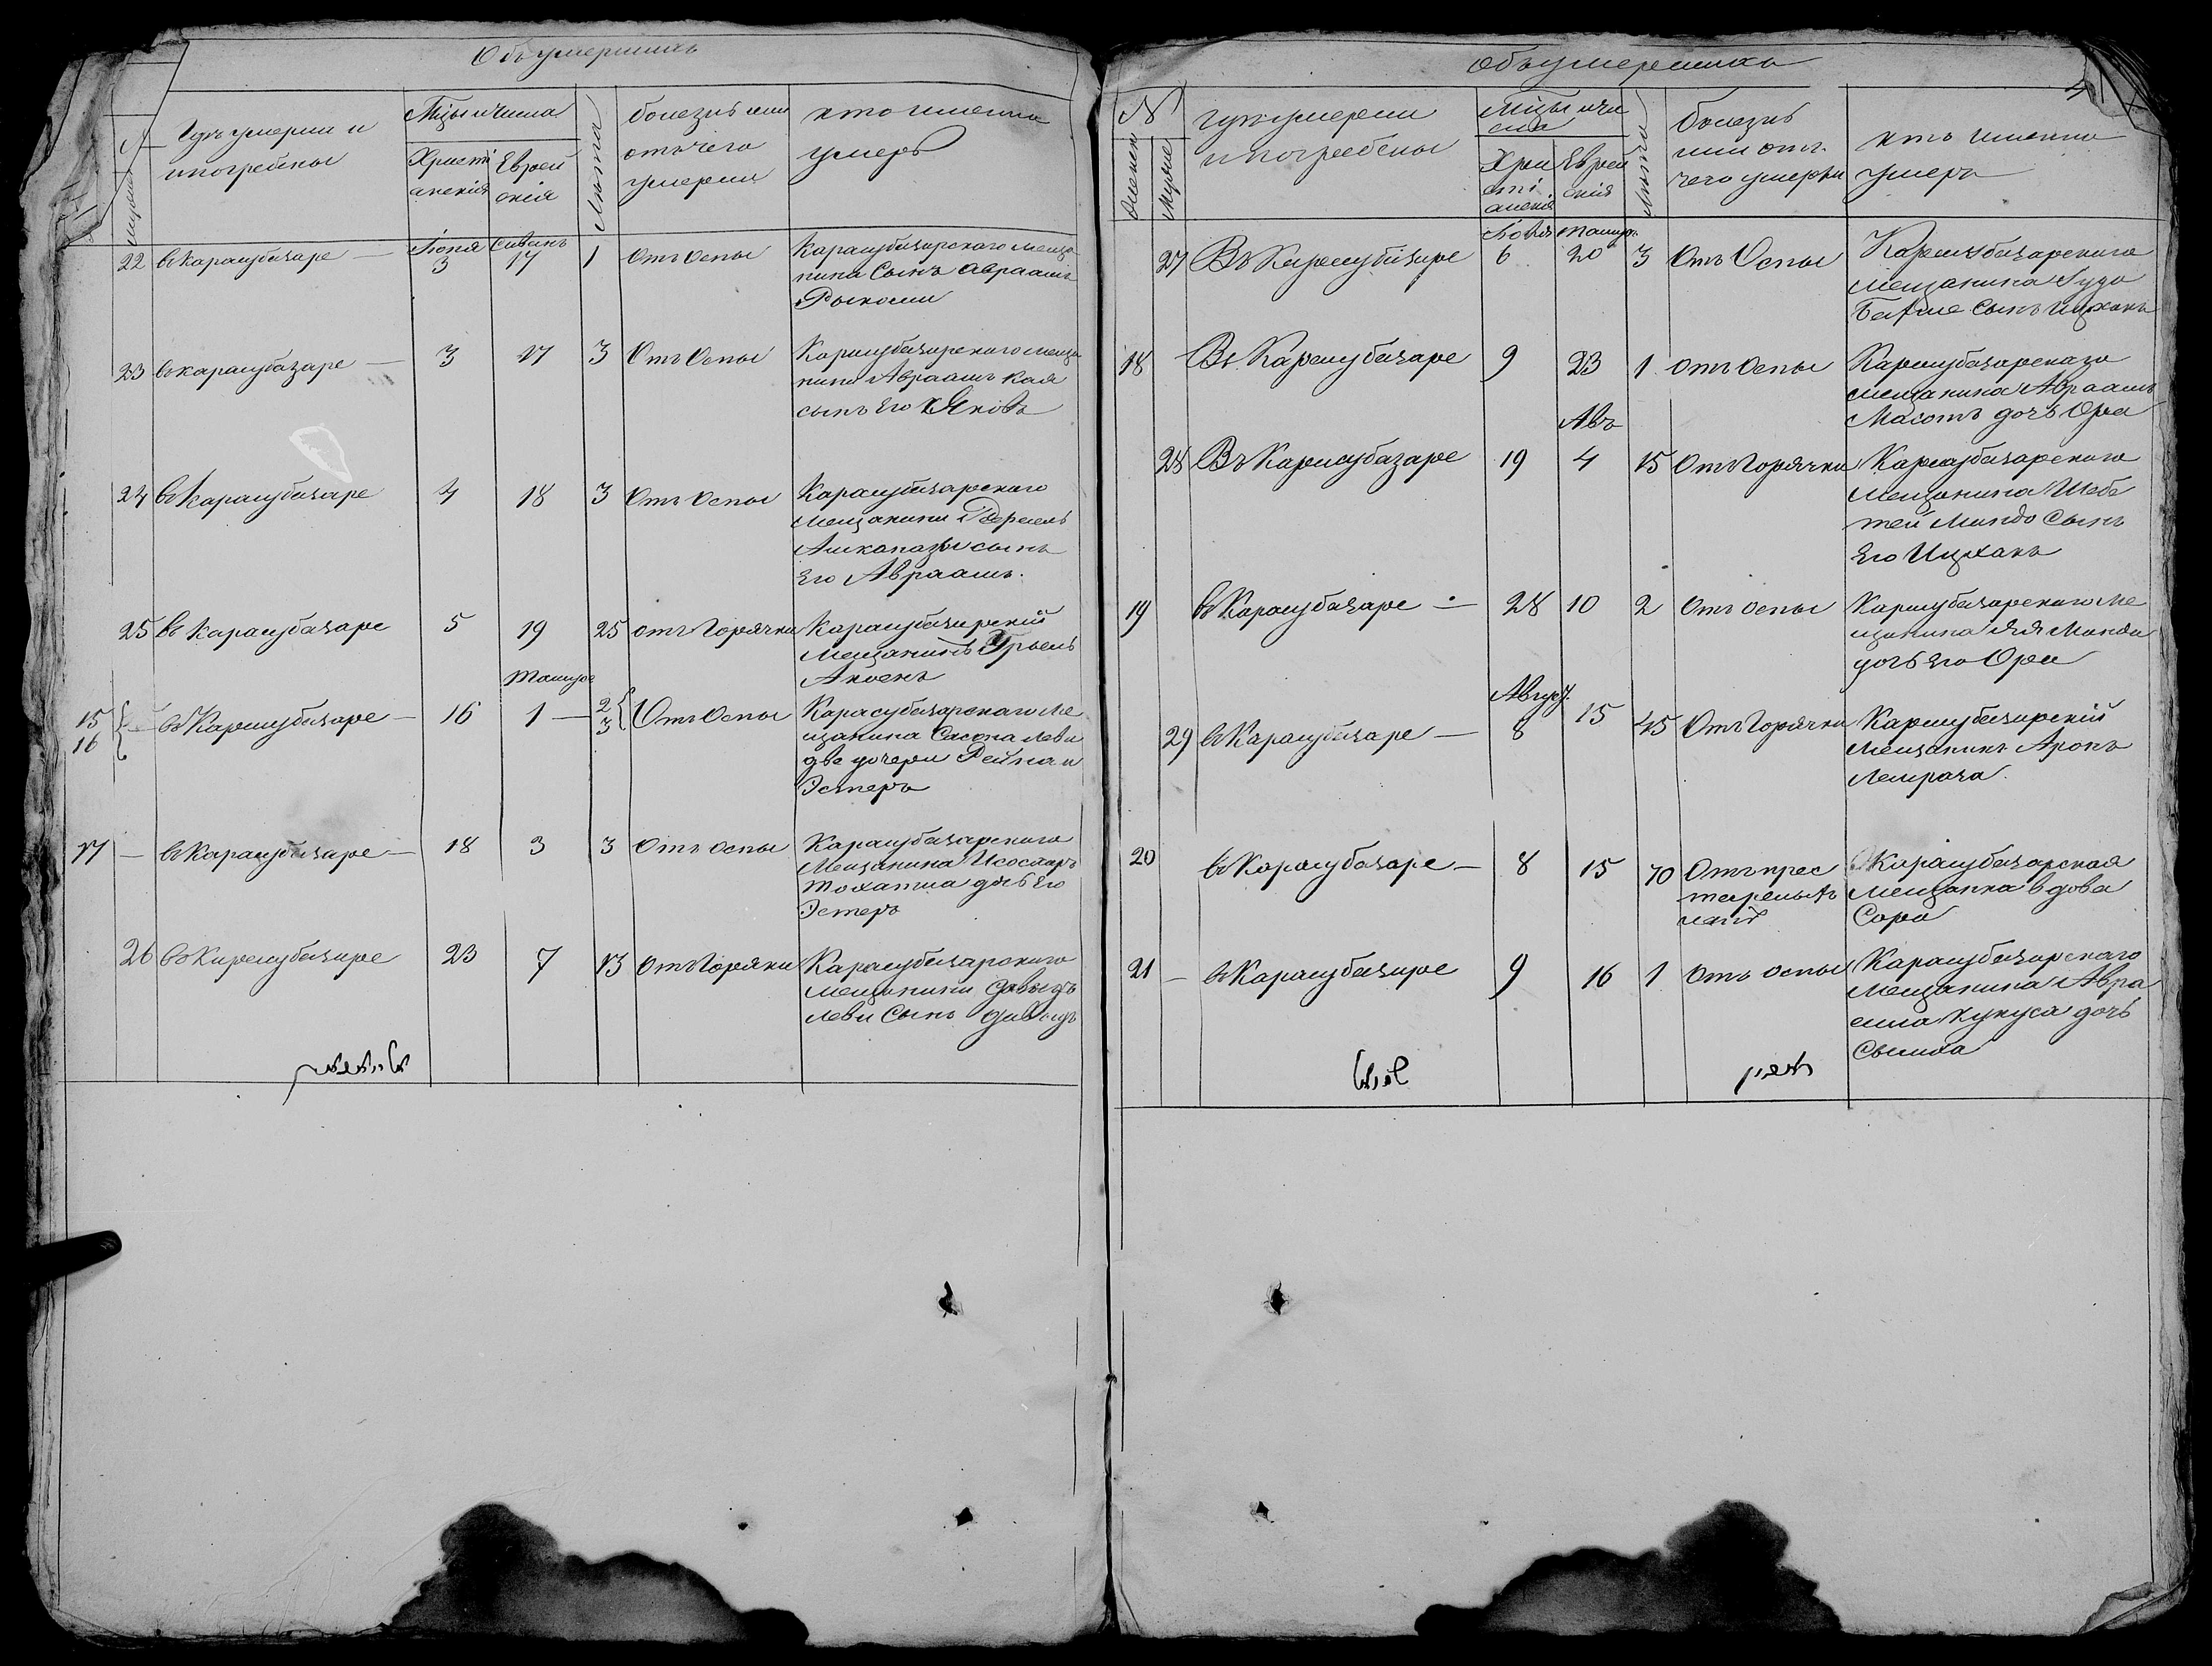 Объ умершихъ
№
Где умерли и
и погребены
Мѣцы и числа
Христі
анскія
Еврей
скія
Лѣта
болезнь или
отъ чего
умерли
кто именно
умеръ
Іюня Сиванъ
22 въ Карасубазаре — 3 17 1 отъ Оспы Карасубазарскаго меща
нина Сынъ Авраамъ
23 въ Карасубазаре — 3 17 3 Отъ Оспы Карасубазарскаго меща
нина Авраамъ Кая
сынъ Его Яковъ
24 въ Карасубазаре 4 18 3 Отъ Оспы Карасубазарскаго
мещанина
Ашканазы сынъ
Его Авраамъ.
25 въ Карасубазаре 5 19 25 отъ Горячки Карасубазарскій
Мещанинъ
Тамузъ
15
16 въ Карасубазаре — 16 1 — 2
3 Отъ Оспы Карасубазарскаго ме
щанина Сасона Леви
две дочери Рейна и
Эстеръ
17 — въ Карасубазаре — 18 3 3 Отъ оспы Карасубазарскаго
Мещанина
дочь Его
Эстеръ
26 въ Карасубазаре 23 7 13 Отъ Горячки Карасубазарскаго
мещанина Давыдъ
Леви Сынъ Давыдъ
Объ умершихъ
4
№
Женск
Мужие
где умерли
и погребены
Мѣцы и чи
сла
Хри
сті
анскія
Еврей
скія
Лѣта
Болезнь
или отъ
чего умерли
кто именно
умеръ
Іюля Тамуз.
27 Въ Карасубазаре 6 20 3 Отъ Оспы Карасубазарскаго
Мещанина
сынъ Ицхакъ
18 Въ Карасубазаре 9 23 1 отъ Оспы Карасубазарскаго
мещанина Авраамъ
дочь Ора
Авъ
28 Въ Карасубазаре 19 4 15 Отъ Горячки Карасубазарскаго
Мещанина Шебе
тей Мандо Сынъ
Его Ицхакъ
19 въ Карасубазаре — 28 10 2 Отъ оспы Карасубазарскаго Ме
щанина
дочь Его Ора
Август.
29 въ Карасубазаре — 8 15 45 Отъ Горячки Карасубазарскій
Мещанинъ Аронъ
20 въ Карасубазаре — 8 15 70 Отъ прес
тарелыхъ
летъ Карасубазарская
Мещанка вдова
Сора
21 — въ Карасубазаре 9 16 1 Отъ оспы Карасубазарскаго
Мещанина Авра
ама Кукуса дочь
Сымха